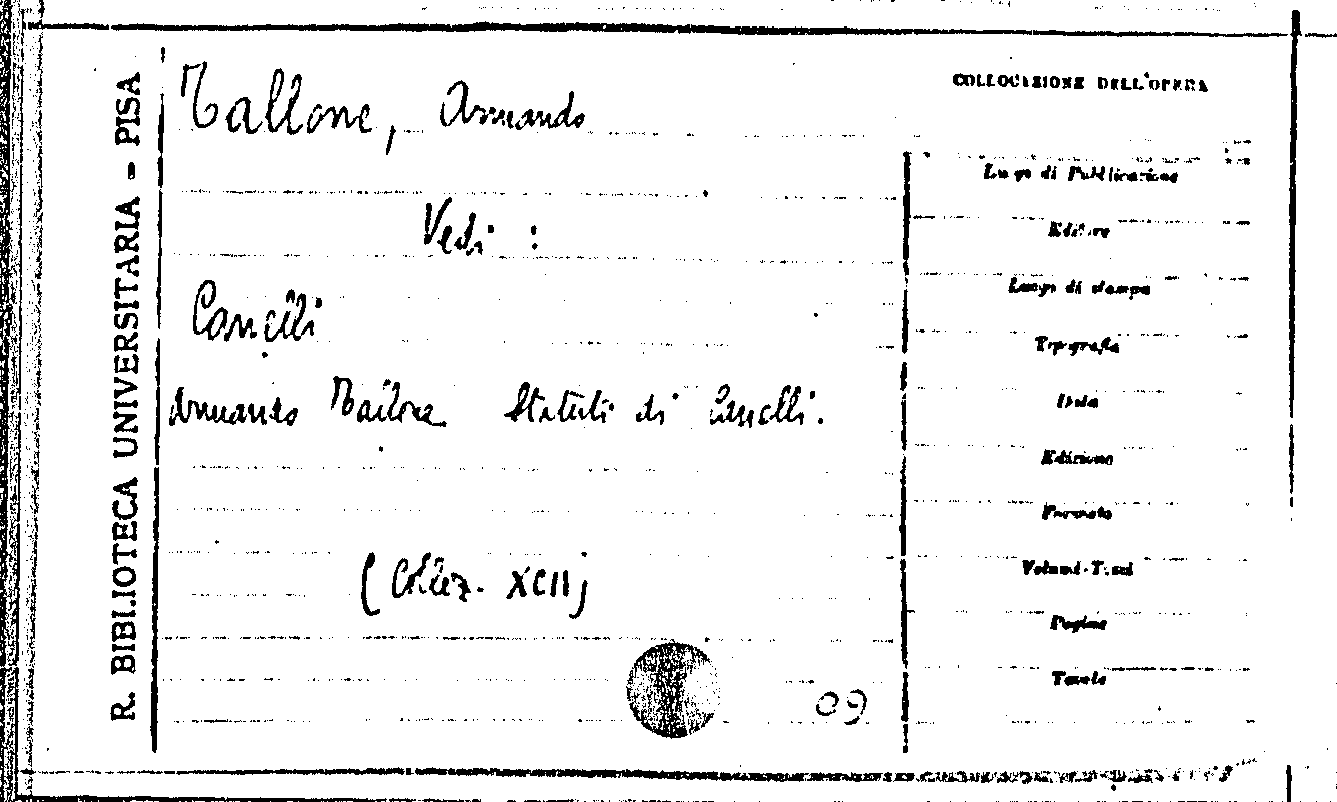 R. BIBLIOTECA UNIVERSITARIA - PISA
Tallone, Armando
Vedi :
Canelli
Armando Tallone Statuti di Canelli.
(Collez. XCII)
09
COLLOCAZIONE DELL'OPERA
Luogo di Pubblicazione
Editore
Luogo di stampa
Tipografia
Data
Edizione
Formato
Volumi-Tomi
Pagine
Tavole